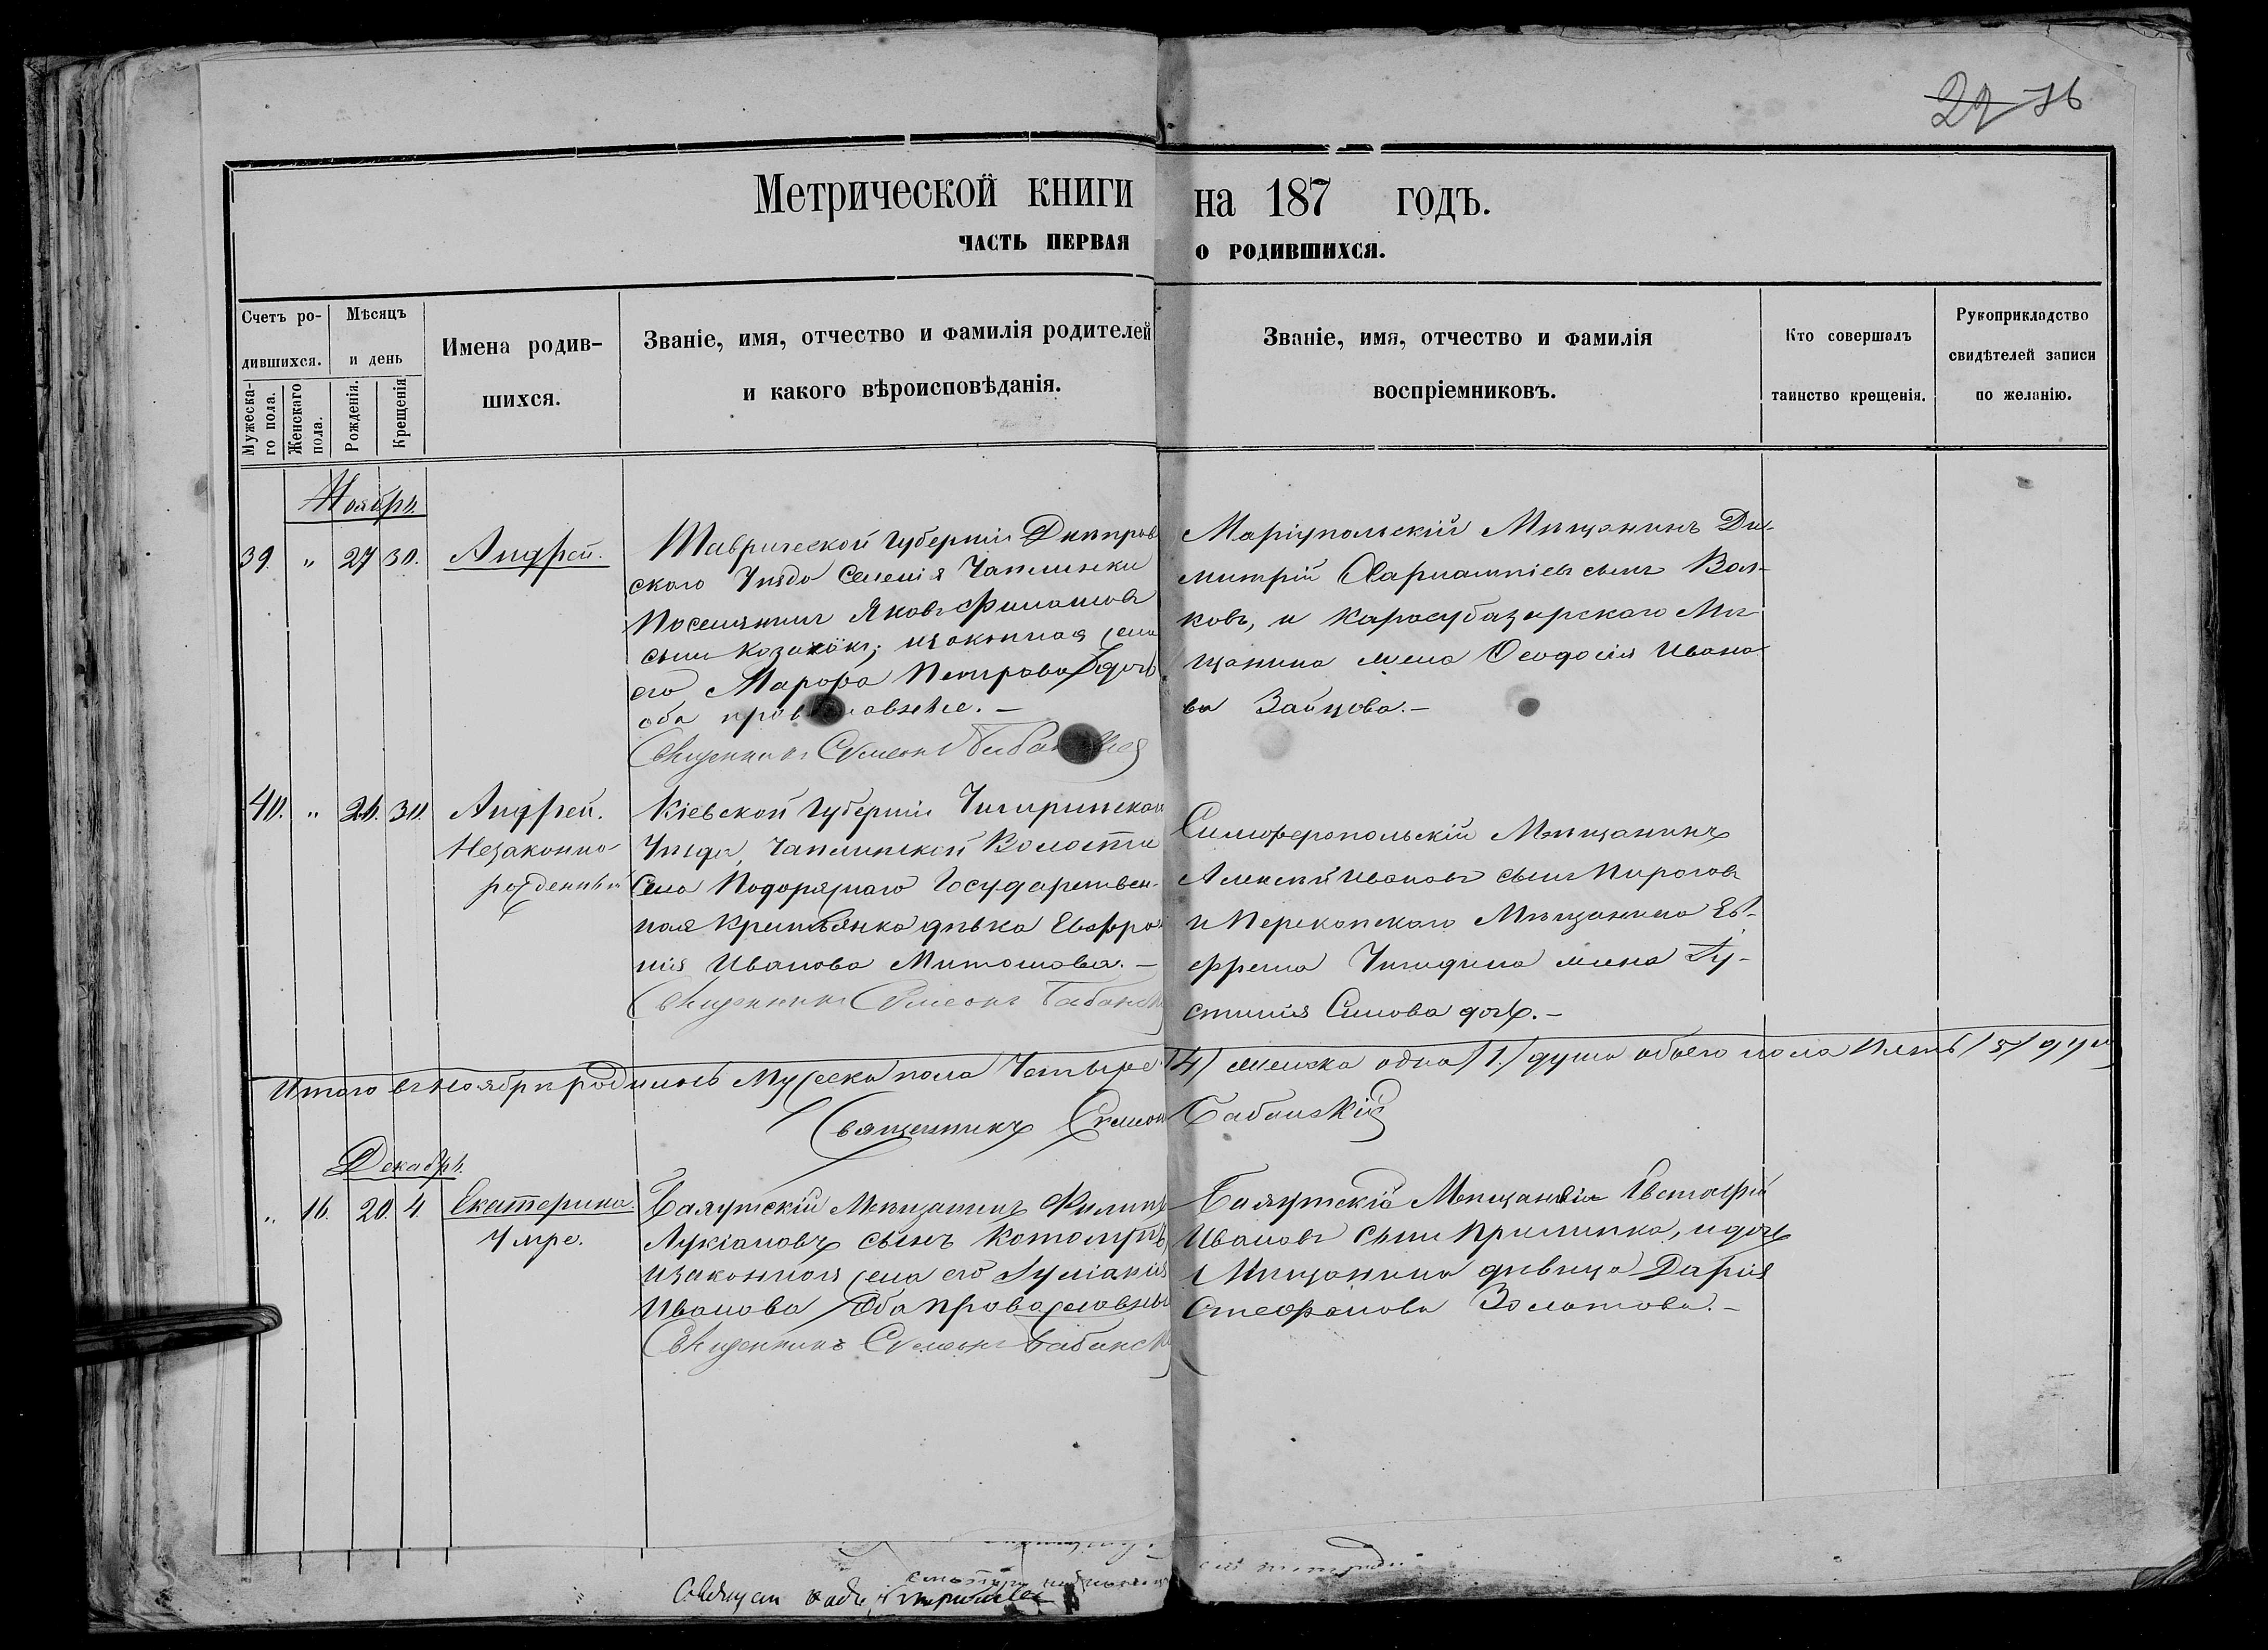 22 76
Метрической книги на 187 годъ.
ЧАСТЬ ПЕРВАЯ О РОДИВШИХСЯ.
Счетъ ро-
дившихся.
Мужеска-
го пола.
Женскаго
пола.
Мѣсяцъ
и день
Рожденія.
Крещенія
Имена родив-
шихся.
Званіе, имя, отчество и фамилія родителей
и какого вѣроисповѣданія.
Званіе, имя, отчество и фамилія
воспріемниковъ.
Кто совершалъ
таинство крещенія.
Рукоприкладство
свидѣтелей записи
по желанію.
Ноябрь.
39. " 27 30. Андрей.
Таврической Губерніи Днѣпров
скаго Уѣзда Селенія Чаплинки
Поселянинъ Яковъ Филатовъ
сынъ Козакокъ; изаконная жена
его Марфа Петрова дочь
оба православные. –
Священникъ Симеонъ Бабанскій
Маріупольскій Мѣщанинъ Ди-
митрій Харлампіевъ сынъ Вол-
ковъ, и Карасубазарскаго Мѣ
щанина жена Ѳеодосія Ивано
ва Зайцова. –
40. " 26. 30. Андрей.
Незаконно-
рожденный
Кіевской Губерніи Чигиринскаго
Уѣзда, Чаплинской Волости
Села Подорожнаго Государствен-
ная Крестьянка дѣвка Евфро
нія Иванова Митошова. –
Священникъ Симеонъ Бабанск
Симферопольскій Мѣщанинъ
Алексѣй Ивановъ сынъ Пироговъ
и Перекопскаго Мѣщанина Еф-
фрема Чигидина жена Іу-
стинія Симова дочь. –
Итого въ Ноябрѣ родилось Мужеска пола Четыре /4/ женска одна /1/ душа обоего пола Пять /5/ душ
Священникъ Симеонъ Бабанскій
Декабрь.
" 16. 20. 4. Екатерина.
Умре.
Балутскій Мѣщанинъ Филипъ
Лукіановъ сынъ
изаконная жена его Іуліанія
Иванова Оба православные
Священникъ Симеонъ Бабанск
Балутскій Мѣщанинъ Евстафій
Ивановъ сынъ Прилипка, и дочь
Мѣщанина дѣвица Дарія
Стефанова Золотова. –